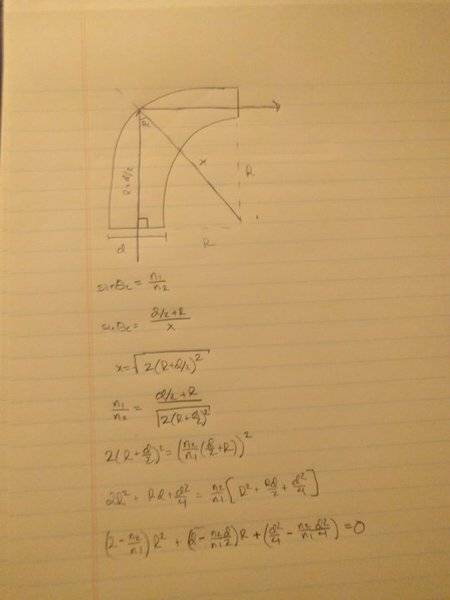 θc
R+d/2
x
R
R
d
sinθc = n1/n2
sinθc = (d/2+R)/x
x=√(2(R+d/2)²)
n1/n2 = (d/2+R)/√(2(R+d/2)²)
2(R+d/2)² = (n2/n1(d/2+R))²
2R² + Rd+d²/4 = n2/n1[R² + Rd/2 + d²/4]
(2-n2/n1)R² + (d-n2/n1 d/2)R + (d²/4 - n2/n1 d²/4) = 0